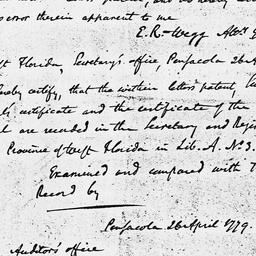 error therein apparent to me
E. R. Wegg Att.
st Florida, Secretary's office, Pensacola 26 A
eby certify, that the within letters patent,
's certificate and the certificate of the
l are recorded in the Secretary and Regis
Province of West Florida in Lib. A. No. 3.
Examined and compared with T
Record by
Pensacola 26 April 1779.
Auditor's office